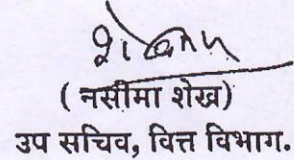 ( नसीमा शेख)
उप सचिव, वित्त विभाग.